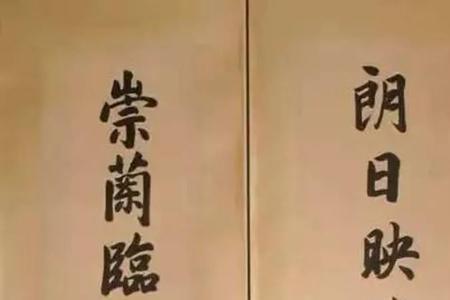 朗日映
崇蘭臨